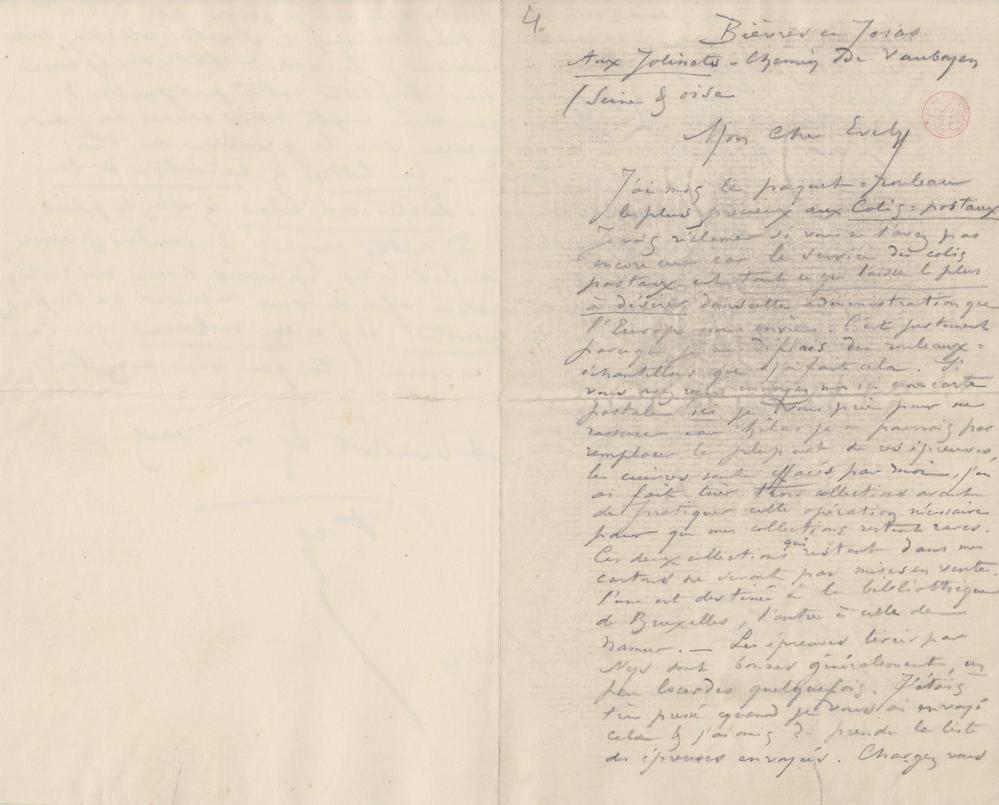 4.
Bièvres en Josas
Aux Jolinets - Chemin de Vauboyen
(Seine & oise
Mon Cher Evely
J'ai mis le paquet = rouleau
le plus précieux aux Colis = postaux
Je vais réclamer si vous ne l'avez pas
encore eu car le service des colis
postaux est tout ce qui laisse le plus
à désirer dans cette administration que
l'Europe nous envie. C'est justement
parceque je me défiais des rouleaux =
échantillons que j'ai fait cela. Si
vous envoyez moi une carte
postale ici je vous prie pour me
rassurer car hélas je ne pourrais pas
remplacer la plupart de ces épreuves
les cuivres sont effacés par moi, j'en
ai fait tirer trois collections avant
de pratiquer cette opération nécessaire
pour que mes collections restent rares.
Ces deux collections qui restent dans mes
cartons ne seront pas mises en vente.
l'une est destinée à la bibliothèque
de Bruxelles, l'autre à celle de
Namur. — Les épreuves tirées par
Nys sont bonnes généralement, un
peu lourdes quelquefois. J'étais
très pressé quand je vous ai envoyé
cela & j'ai omis de prendre la liste
des épreuves envoyées. Chargez vous